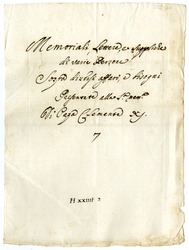 Memoriali, Lettere, e Suppliche
di varie Persone
Sopra diversi affari, e bisogni
Presentate alla
Di Papa Clemente XI.
7
H xxiiii 2